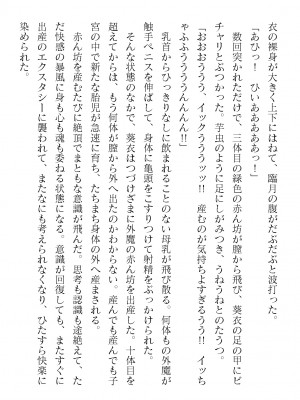 衣の裸身が大きく上下にはねて、臨月の腹がだぷだぷと波打った。
「あひっ！　ひいぁああああっ！」
数回突かれただけで、三体目の緑色の赤ん坊が膣から飛び、葵衣の足の甲にビ
チャリとぶつかった。芋虫のように足にしがみつき、うねうねとのたうつ。
「おおおううう、イックうううッッ！　産むのが気持ちよすぎるうう!!　イッち
ゃふううううんんんん!!」
乳首からひっきりなしに飲まれることのない母乳が飛び散る。何体もの外魔が
触手ペニスを伸ばして、身体に亀頭をこすりつけて射精をぶっかけられた。
そんな状態のなかで、葵衣はつづけざまに外魔の赤ん坊を出産した。十体目を
超えてからは、もう何体が膣から外へ出たのかわからない。産んでも産んでも子
宮の中で新たな胎児が急速に育ち、たちまち身体の外へ産まされる。
赤ん坊を産むたびに絶頂でまともな意識が飛んだ。思考も認識も途絶えて、た
だ快感の暴風に身も心も魂も委ねる状態になる。意識が回復しても、またすぐに
出産のエクスタシーに襲われて、またなにも考えられなくなり、ひたすら快楽に
染められた。